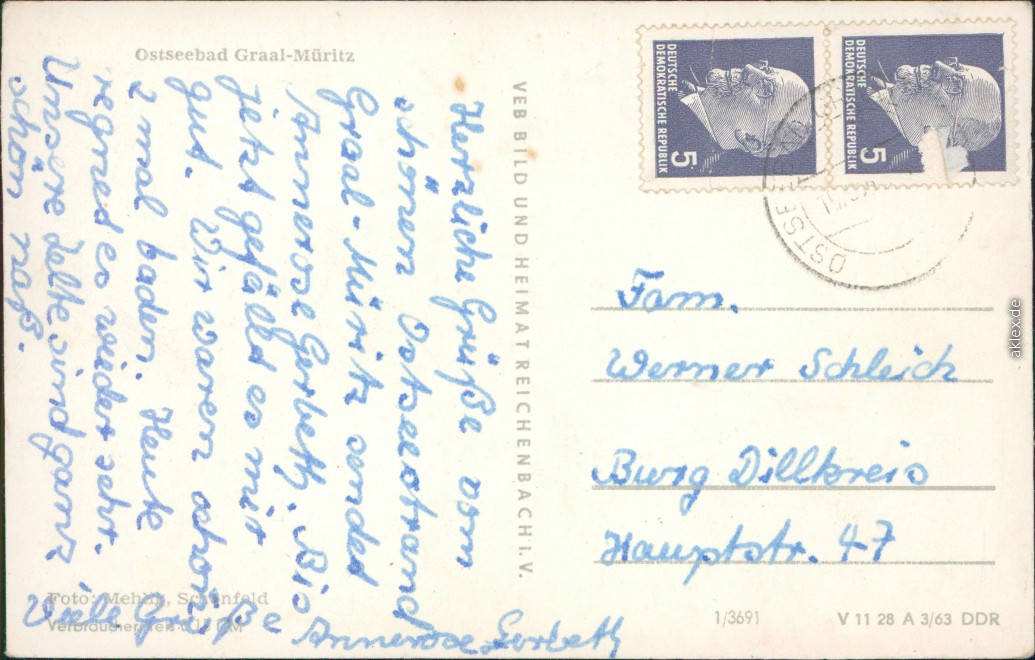 Ostseebad Graal-Müritz
Herzliche Grüße vom
schönen Ostseestrand
Graal-Müritz sendet
Annerose Gerbeth. Bis
jetzt gefällt es mir
gut. Wir waren schon
2 mal baden. Heute
regnet es wieder sehr.
Unsere Zelte sind ganz
schön naß.
Viele Grüße
Annerose Gerbeth
Foto: Mehlig, Schönfeld
VEB BILD UND HEIMAT REICHENBACH I. V.
DEUTSCHE
DEMOKRATISCHE REPUBLIK
5
DEUTSCHE
DEMOKRATISCHE REPUBLIK
5
Fam.
Werner Schleich
Burg Dillkreis
Hauptstr. 47
1/3691
V 11 28 A 3/63 DDR
aklex.de